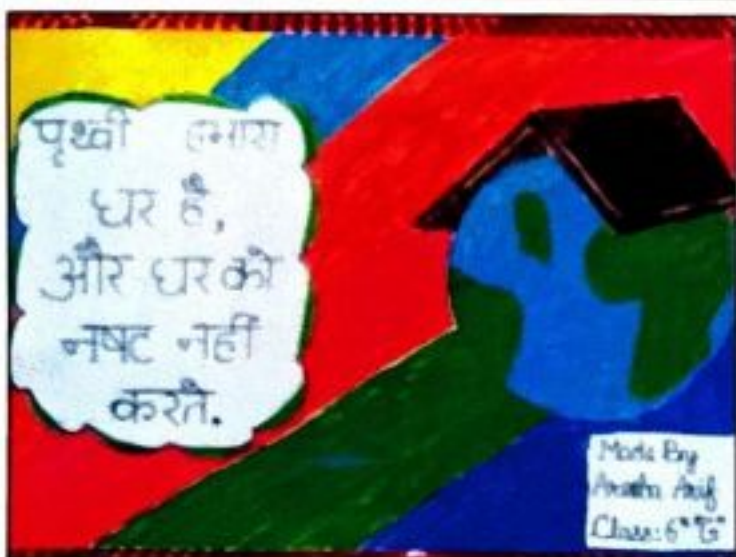 पृथ्वी हमारा
घर है,
और घर को
नष्ट नहीं
करते.
Made By
Arif
Class: 6th "G"